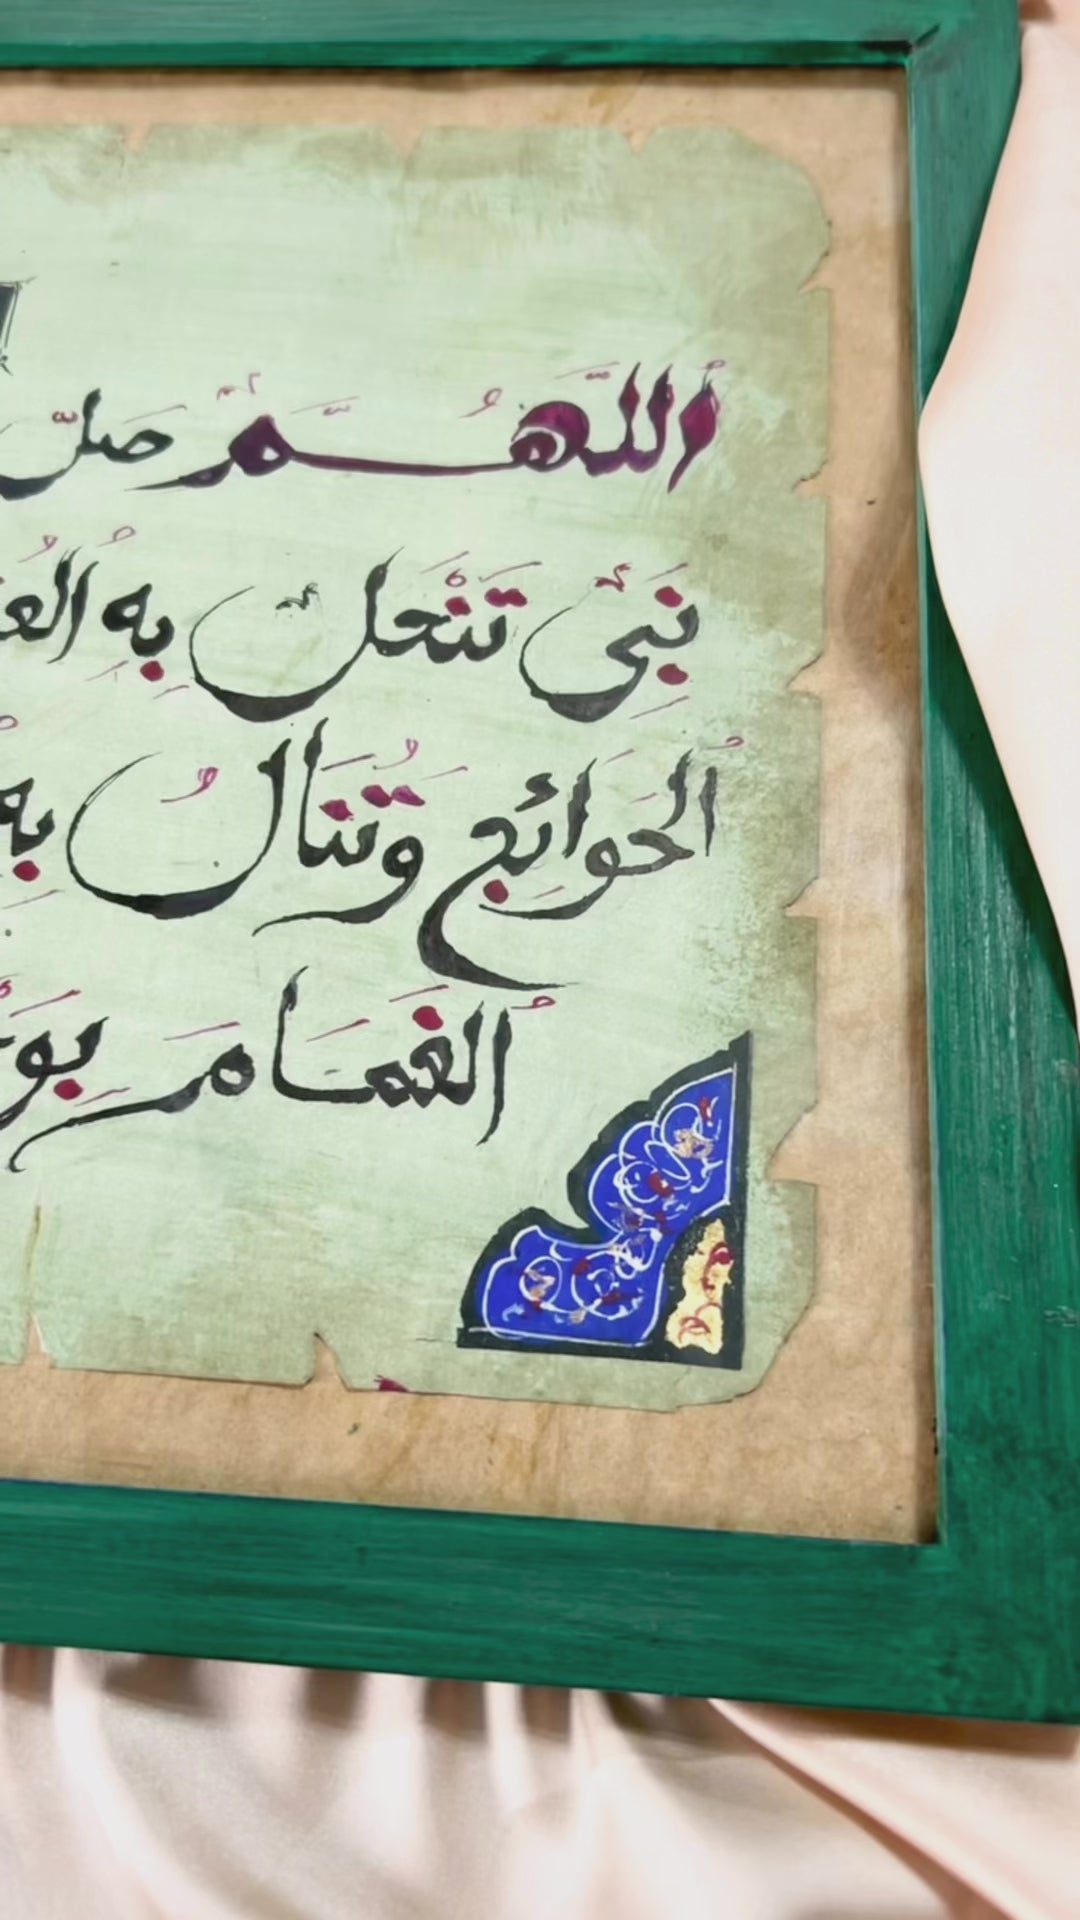 اَللَّهُمَّ صَلِّ
نَبِيٍّ تَنْحَلُّ بِهِ
اُلْحَوَائِجُ وَتُنَالُ بِهِ
اُلْغَمَامُ